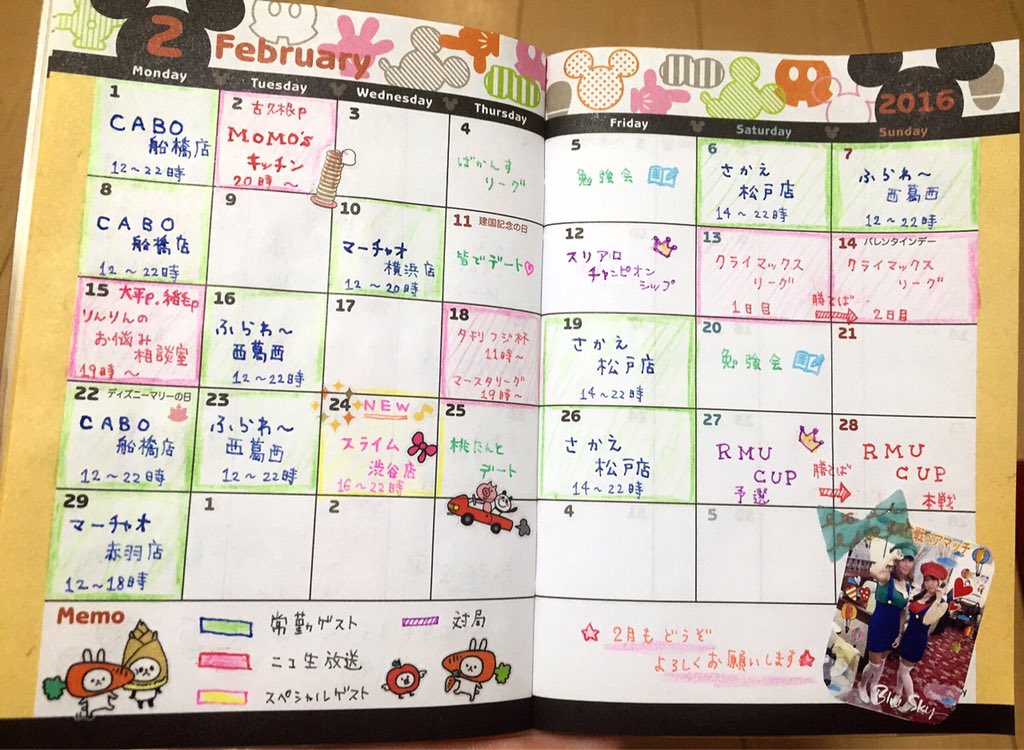 2
February
2016
Monday
Tuesday
Wednesday
Thursday
Friday
Saturday
Sunday
1
CABO
船橋店
12〜22時
2 古久根P
MOMO's
キッチン
20時〜
3
4
ばかんす
リーグ
5
勉強会
6
さかえ
松戸店
14〜22時
7
ふらわ〜
西葛西
12〜22時
8
CABO
船橋店
12〜22時
9
10
マーチャオ
横浜店
12〜20時
11 建国記念の日
皆でデート
12
スリアロ
チャンピオン
シップ
13
クライマックス
リーグ
1日目
勝てば
14 バレンタインデー
クライマックス
リーグ
2日目
15 大平P.稲毛P
りんりんの
お悩み
相談室
19時〜
16
ふらわ〜
西葛西
12〜22時
17
18
タモリフジ杯
11時〜
マースタリーグ
19時〜
19
さかえ
松戸店
14〜22時
20
勉強会
21
22 ディズニーマリーの日
CABO
船橋店
12〜22時
23
ふらわ〜
西葛西
12〜22時
24 NEW
スライム
渋谷店
16〜22時
25
桃たんと
デート
26
さかえ
松戸店
14〜22時
27
RMU
CUP
予選
勝てば
28
RMU
CUP
本戦
29
マーチャオ
赤羽店
12〜18時
1
2
4
5
Memo
常勤ゲスト
対局
ニコ生放送
スペシャルゲスト
2月もどうぞ
よろしくお願いします
戦ペアマッチ
Blue Sky